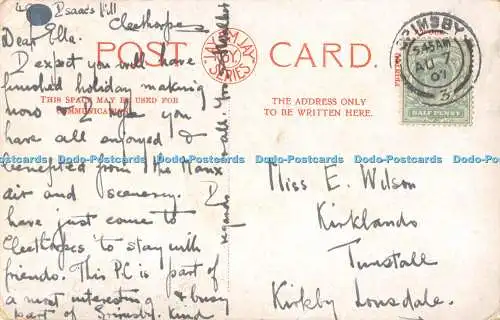 Isaac's Hill
Cleethorpes
Dear Ella.
I expect you will have
finished holiday making
now & I hope you
have all enjoyed &
benefited from the Manx
air and scenery. I
have just come to
Cleethorpes to stay with
friends. This PC is part of
a most interesting & busy
part of Grimsby. Kind
regards to all. Yours
POST CARD.
JAY EM JAY
SERIES
THIS SPACE MAY BE USED FOR
COMMUNICATION
THE ADDRESS ONLY
TO BE WRITTEN HERE.
GRIMSBY
5.45 AM
AU 7
07
3
HALFPENNY
Miss E. Wilson
Kirklands
Tunstall
Kirkby Lonsdale.
Dodo-Postcards Dodo-Postcards Dodo-Postcards Dodo-Postcards Dodo-Postcards Dodo-Postcards